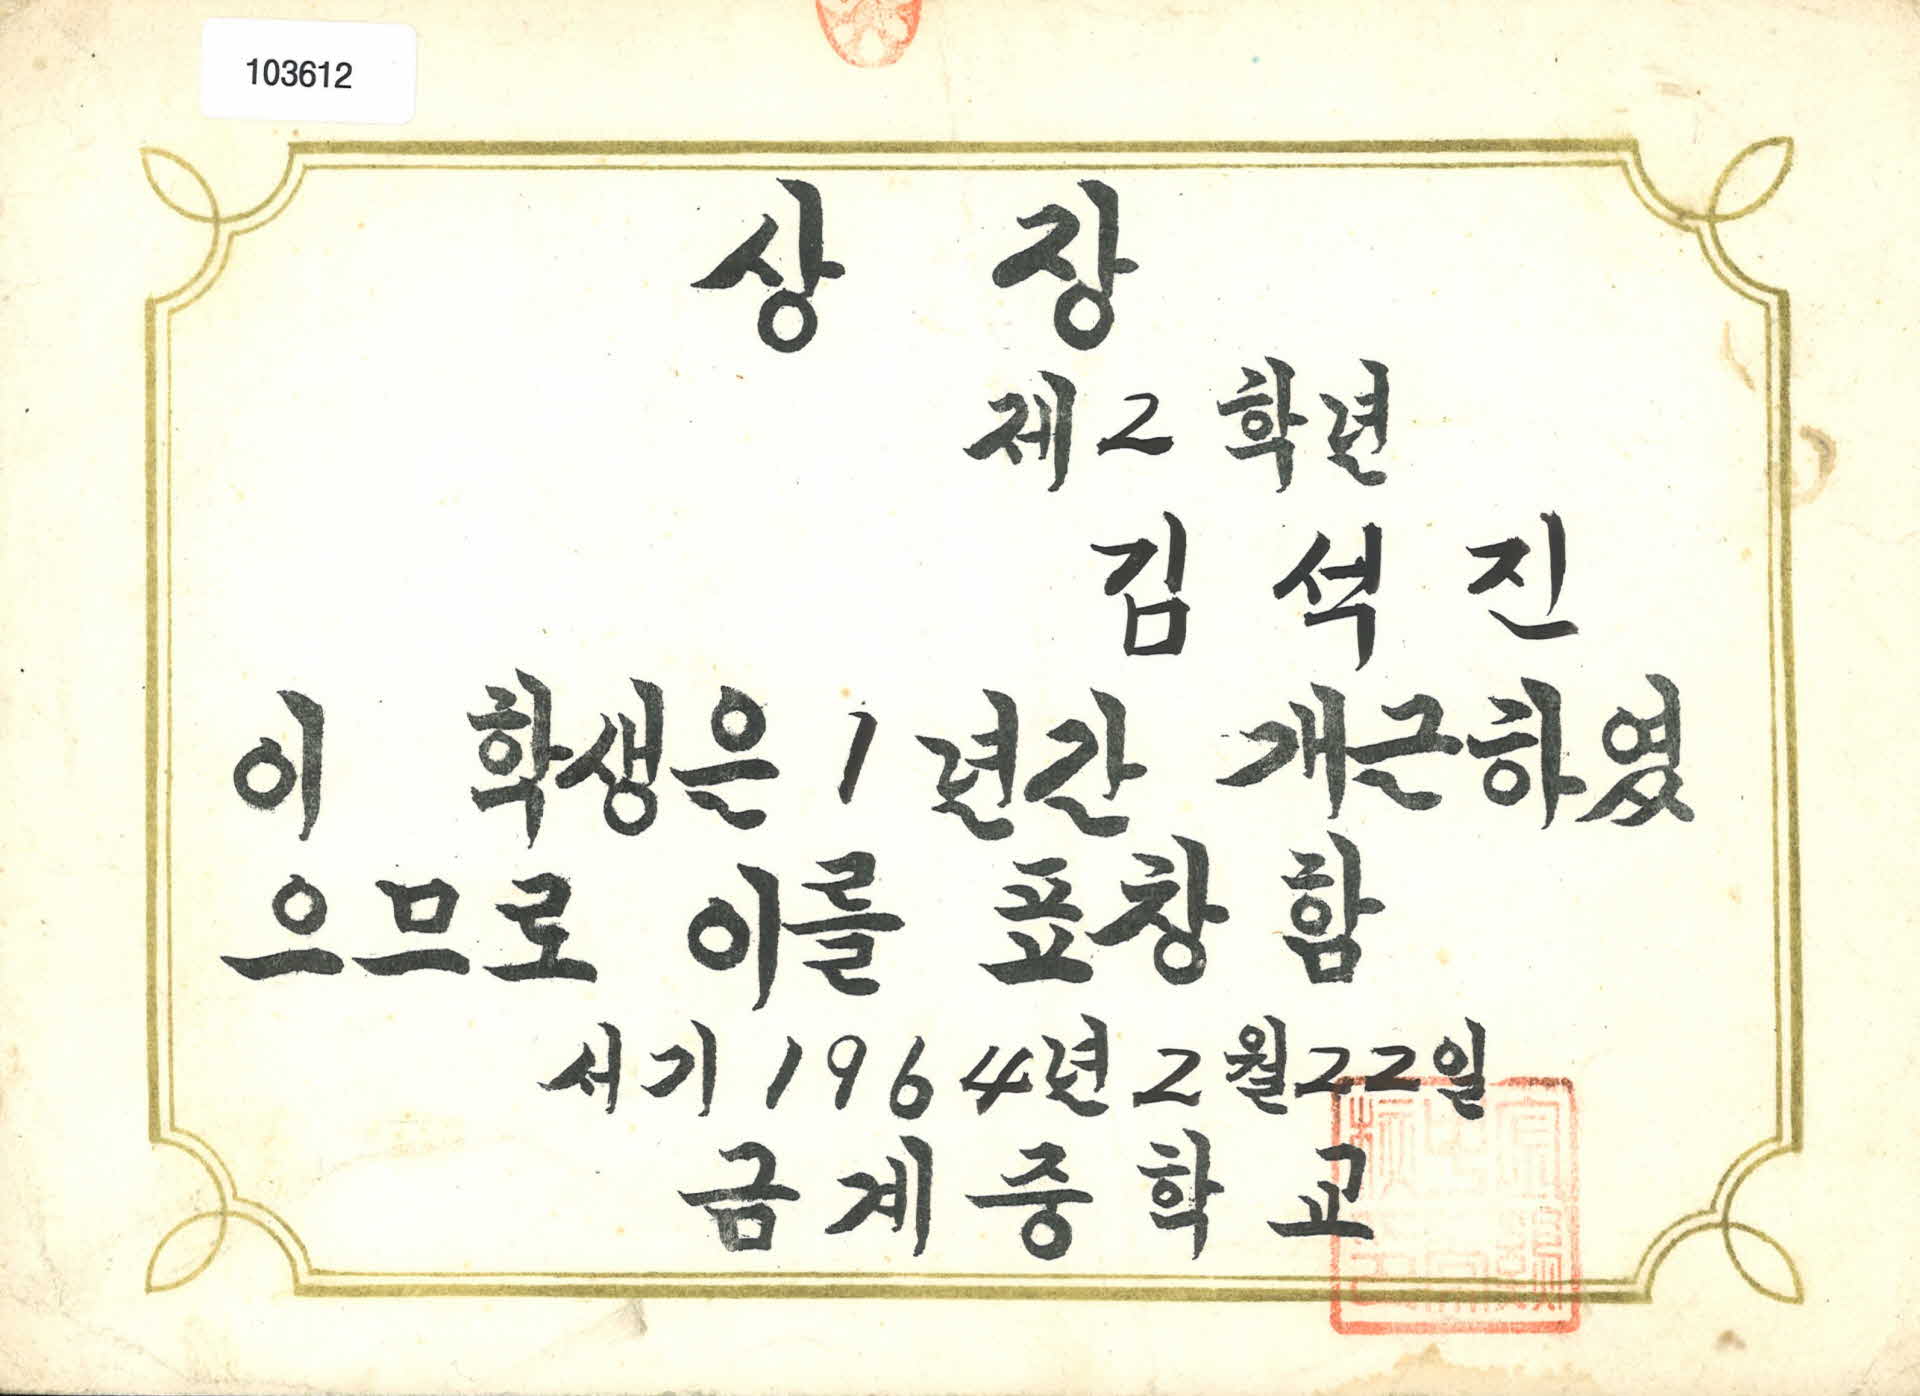 103612
상 장
제2학년
김 석 진
이 학생은 1년간 개근하였
으므로 이를 표창함
서기 1964년 2월 22일
금계중학교